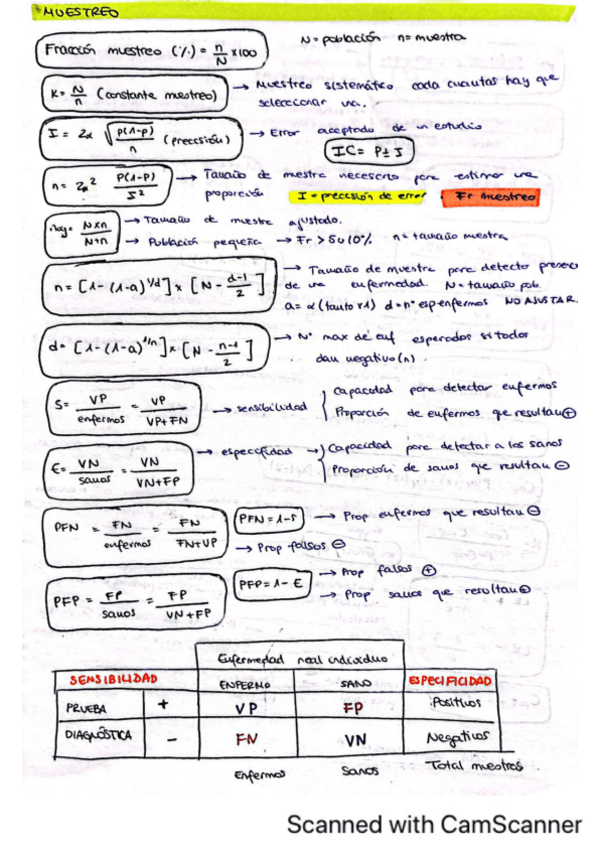 MUESTREO
Fracción muestreo (%) = n/N x100
N = población n = muestra
K = N/n (constante muestreo) → Muestreo sistemático cada cuantos hay que
seleccionar una.
I = Zα √(P(1-P)/n) (precisión) → Error aceptado de un estudio
IC = P ± I
n = Zα² P(1-P)/I² → Tamaño de muestra necesario para estimar una
proporción I = precisión de error Fr muestreo
N×n/N+n → Tamaño de muestra ajustado.
→ Población pequeña → Fr > 5 u 10% n = tamaño muestra
n = [1-(1-a)^1/d] x [N - d-1/2] → Tamaño de muestra para detectar
de una enfermedad. N = tamaño pob.
a = α (tanto x1) d = nº esp enfermos NO AJUSTAR.
d = [1-(1-a)^1/n] x [N - n-1/2] → Nº max de enf esperados si todos
dan negativo (n).
S = VP/enfermos = VP/VP+FN → sensibilidad { Capacidad para detectar enfermos
Proporción de enfermos que resultan ⊕
E = VN/sanos = VN/VN+FP → especifidad → { Capacidad para detectar a los sanos
Proporción de sanos que resultan ⊖
PFN = FN/enfermos = FN/FN+VP PFN = 1-S → Prop enfermos que resultan ⊖
→ Prop falsos ⊖
PFP = FP/sanos = FP/VN+FP PFP = 1-E → Prop falsos ⊕
→ Prop sanos que resultan ⊕
Enfermedad real individuo
SENSIBILIDAD ENFERMO SANO ESPECIFICIDAD
PRUEBA + VP FP Positivos
DIAGNÓSTICA - FN VN Negativos
Enfermos Sanos Total muestras
Scanned with CamScanner